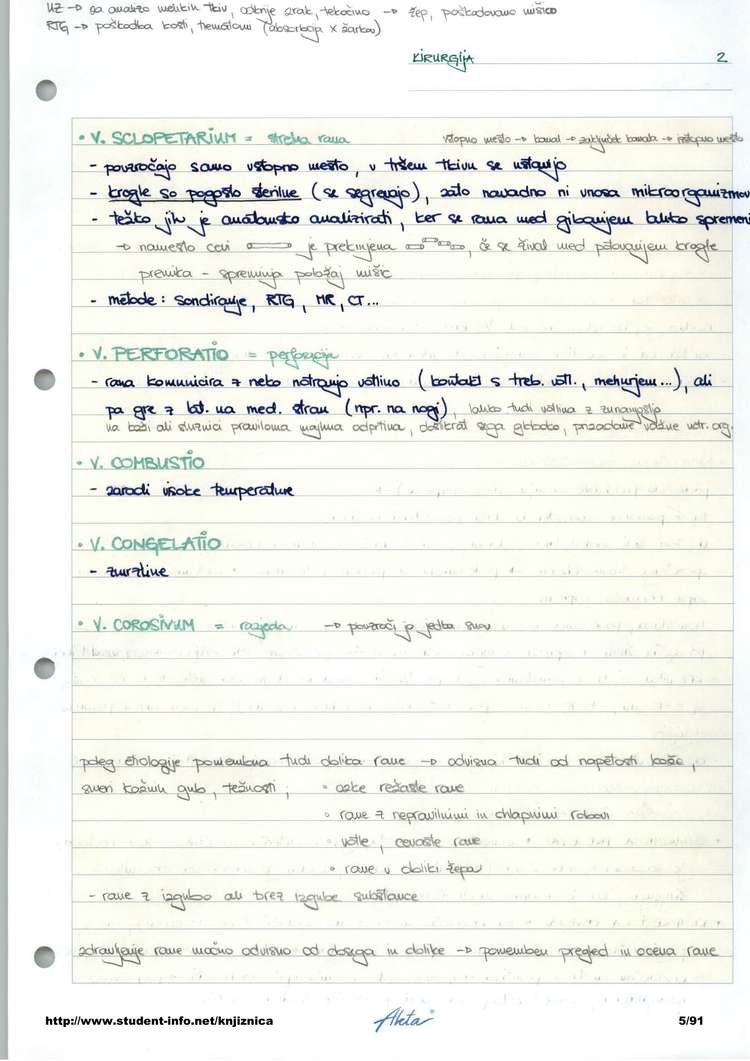 UZ → za analizo mehkih tkiv, odkrije zrak, tekočino → žep, poškodovano mišico
RTG → poškodba kosti, hematomi (absorbcija X žarkov)
KIRURGIJA 2
• V. SCLOPETARIUM = strelna rana vstopno mesto → kanal → zaključek kanala → izstopno mesto
- povzročajo samo vstopno mesto, v tršem tkivu se ustavijo
- krogle so pogosto sterilne (se segrevajo), zato navadno ni vnosa mikroorganizmov
- težko jih je anatomsko analizirati, ker se rana med gibanjem lahko spremeni
→ namesto cevi je prekinjena , če se žival med potovanjem krogle
premika - spreminja položaj mišic
- metode: sondiranje, RTG, MR, CT...
• V. PERFORATIO = perforacija
- rana komunicira z neko notranjo votlino (kontakt s treb. votl., mehurjem...), ali
pa gre z lat. na med. stran (npr. na nogi), lahko tudi votlina z zunanjostjo
na koži ali sluznici praviloma majhna odprtina, dostikrat sega globoko, prizadane votline notr. org.
• V. COMBUSTIO
- zaradi visoke temperature
• V. CONGELATIO
- zmrzline
• V. COROSIVUM = razjeda → povzroči jo jedka snov
poleg etiologije pomembna tudi oblika rane → odvisna tudi od napetosti kože,
smeri kožnih gub, težnosti; ◦ ozke režaste rane
◦ rane z nepravilnimi in ohlapnimi robovi
◦ votle, cevaste rane
◦ rane v obliki žepa
- rane z izgubo ali brez izgube substance
zdravljenje rane močno odvisno od obsega in oblike → pomemben pregled in ocena rane
http://www.student-info.net/knjiznica Akta 5/91